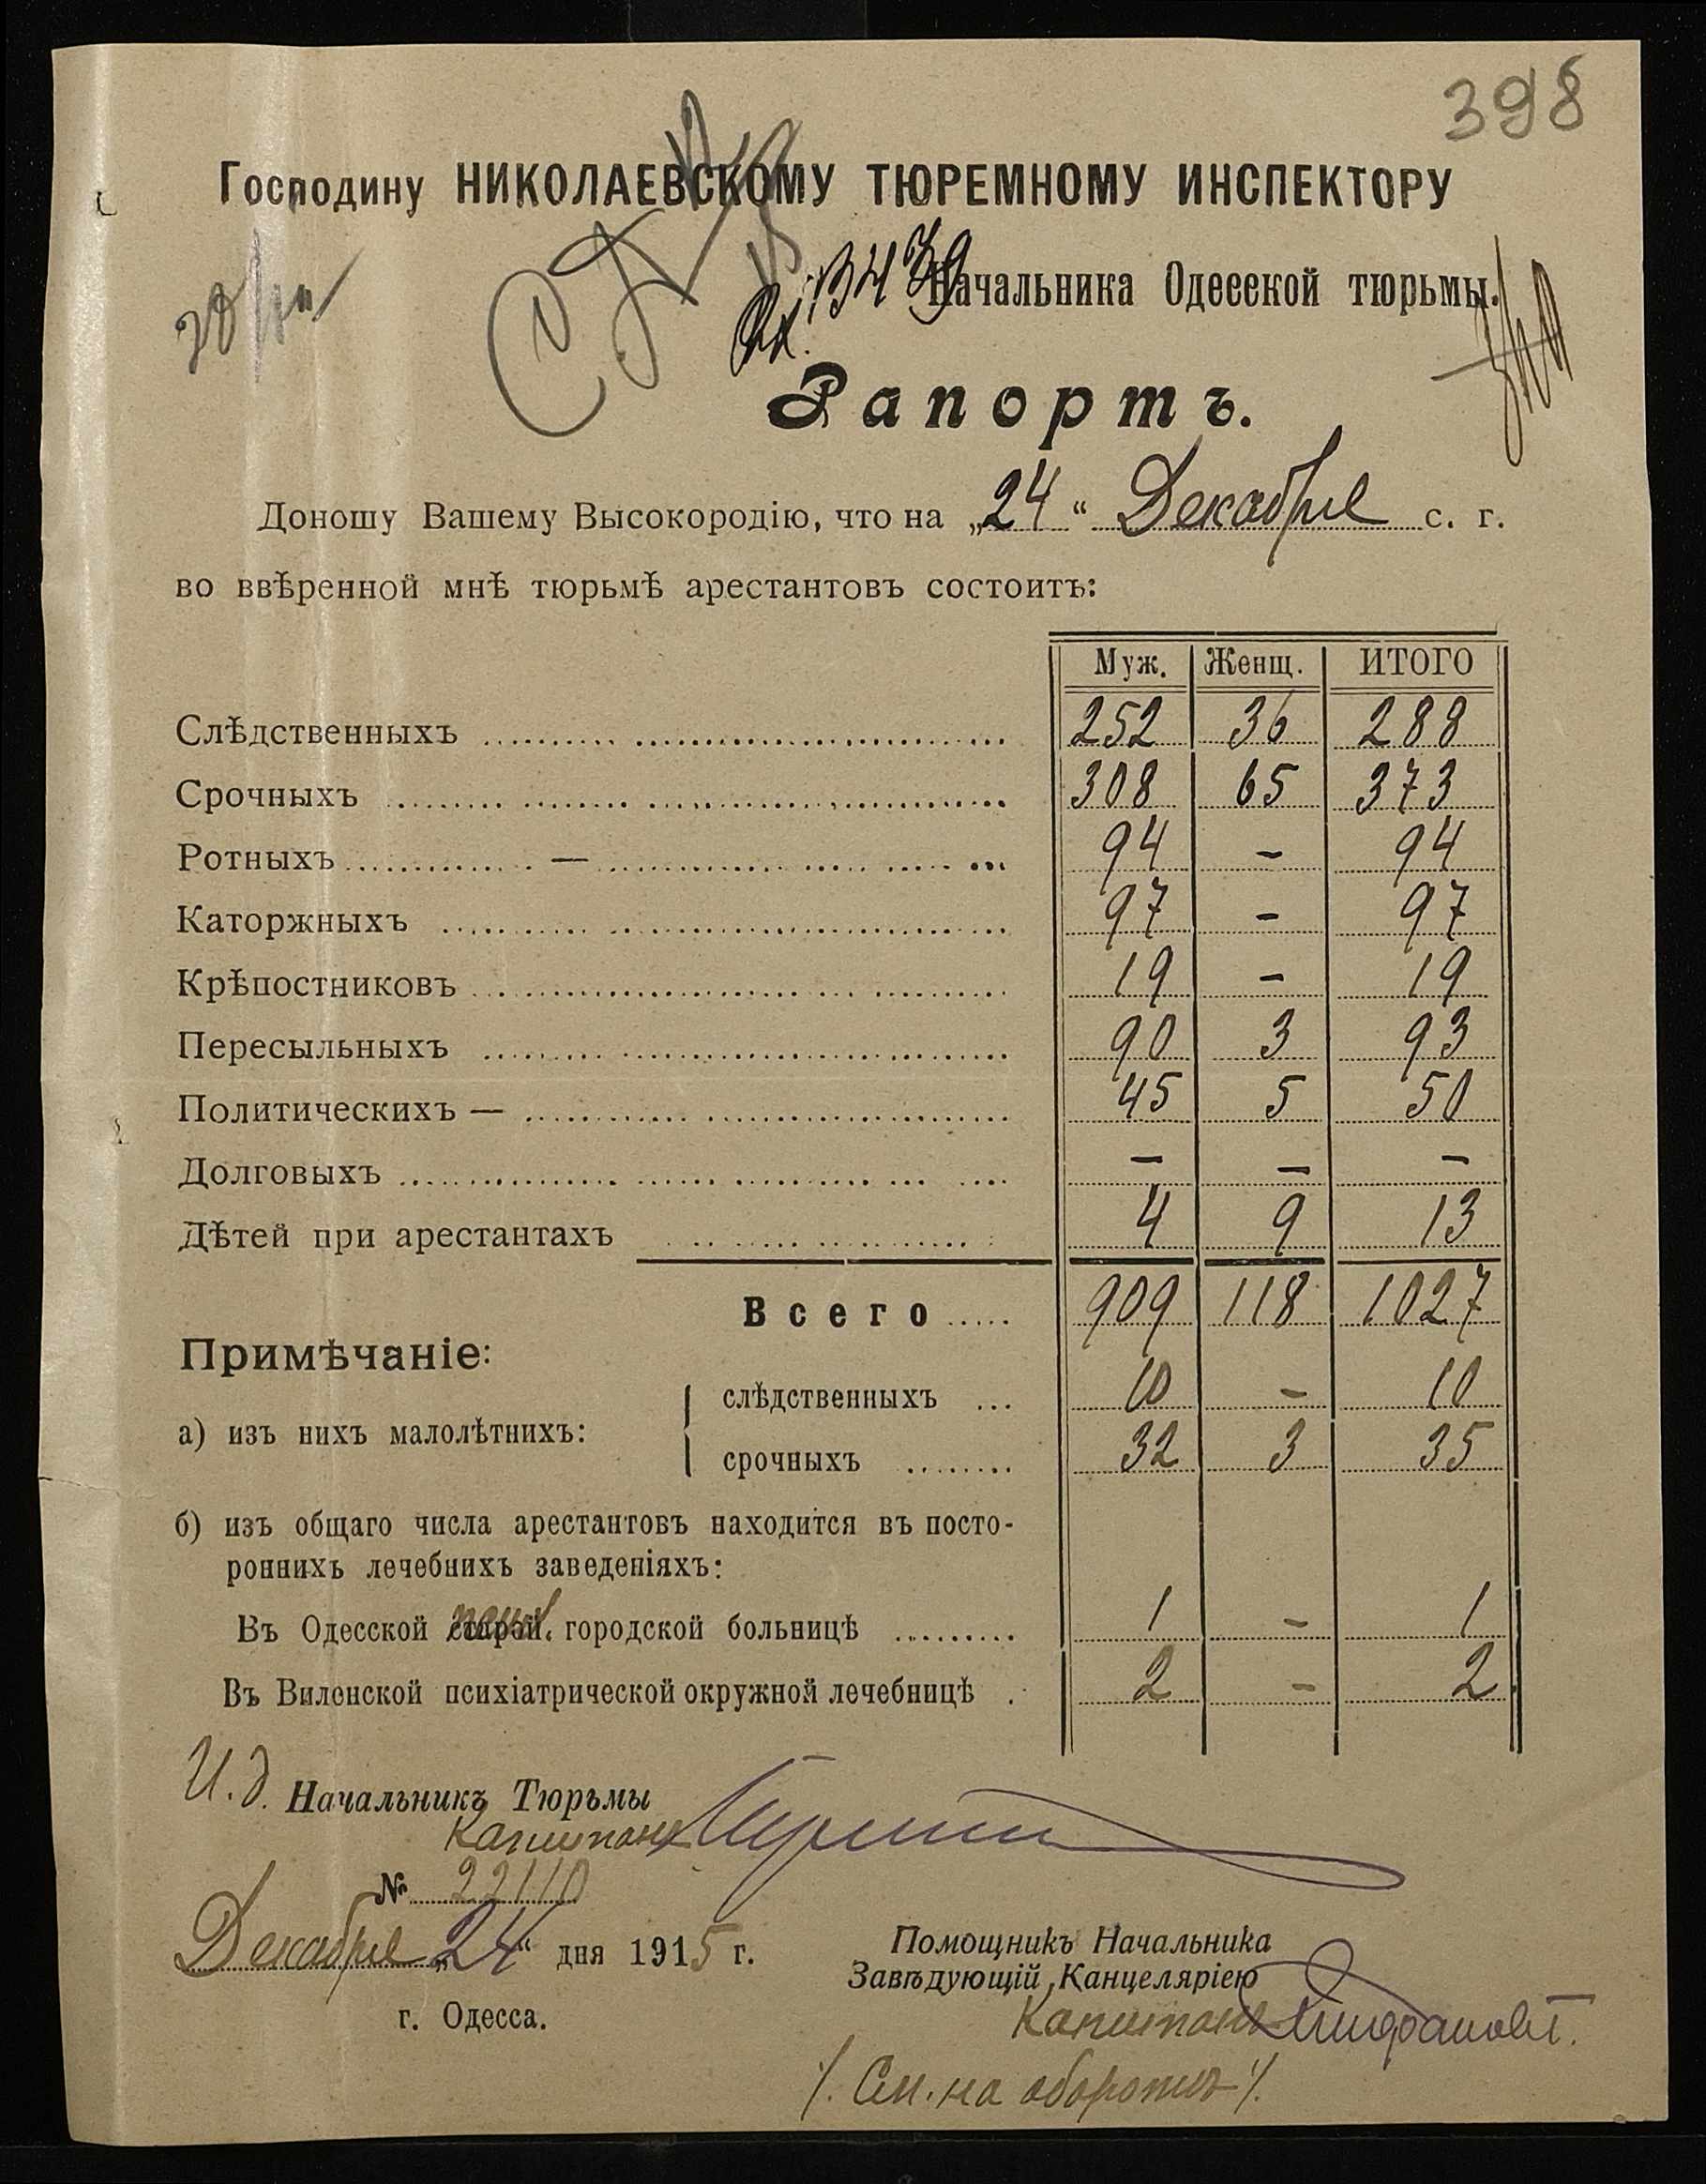 398
Господину НИКОЛАЕВСКОМУ ТЮРЕМНОМУ ИНСПЕКТОРУ
Вх. 13479
Начальника Одесской тюрьмы.
Рапортъ.
Доношу Вашему Высокородію, что на „24“ Декабря с. г.
во ввѣренной мнѣ тюрьмѣ арестантовъ состоитъ:
Муж. Женщ. ИТОГО
Слѣдственныхъ 252 36 288
Срочныхъ 308 65 373
Ротныхъ — 94 - 94
Каторжныхъ 97 - 97
Крѣпостниковъ 19 - 19
Пересыльныхъ 90 3 93
Политическихъ — 45 5 50
Долговыхъ — — —
Дѣтей при арестантахъ 4 9 13
Всего 909 118 1027
Примѣчаніе:
а) изъ нихъ малолѣтнихъ:
слѣдственныхъ 10 - 10
срочныхъ 32 3 35
б) изъ общаго числа арестантовъ находится въ посто-
роннихъ лечебнихъ заведеніяхъ:
Въ Одесской городской больницѣ 1 - 1
Въ Виленской психіатрической окружной лечебницѣ 2 - 2
И. д. Начальникъ Тюрьмы
Капитанъ
№ 22110
Декабря „24“ дня 1915 г.
г. Одесса.
Помощникъ Начальника
Завѣдующій Канцеляріею
Капитанъ
/. См. на оборотѣ /.